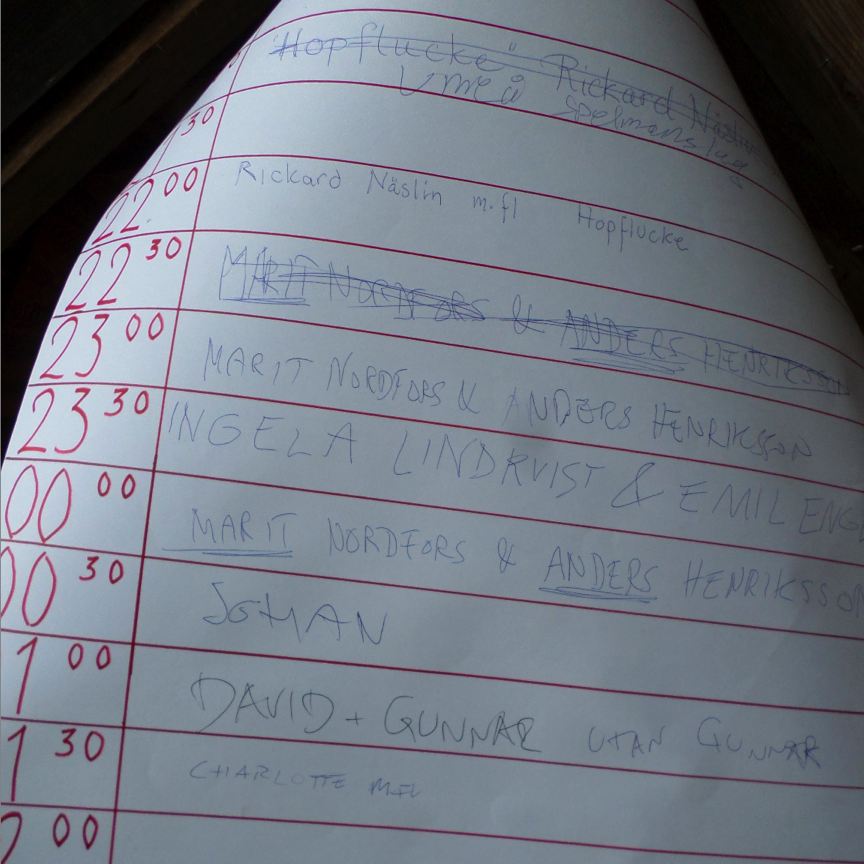 "Hopflucke" Rickard Näslin
Umeå Spelmanslag
30
22 00 Rickard Näslin m.fl Hopflucke
22 30 MARIT NORDFORS & ANDERS HENRIKSSON
23 00 MARIT NORDFORS & ANDERS HENRIKSSON
23 30 INGELA LINDKVIST & EMIL ENG
00 00 MARIT NORDFORS & ANDERS HENRIKSSON
00 30 JOHAN
1 00 DAVID + GUNNAR UTAN GUNNAR
1 30 CHARLOTTE M.FL
00